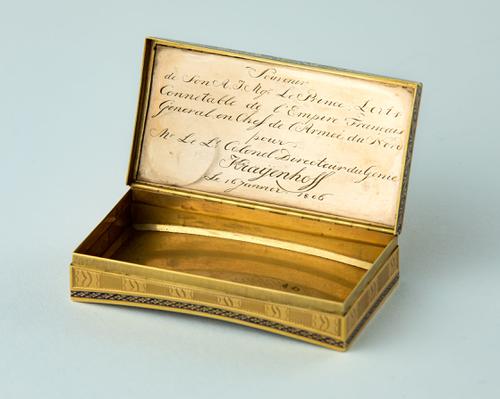 Souvenir
de Son A. J. Mgr Le Prince
Connétable de l'Empire Francais
Général en Chef de l'Armée du Nord
pour
Mr Le Lt Colonel Directeur du Génie
Kraijenhoff
Le 16 janvier 1806